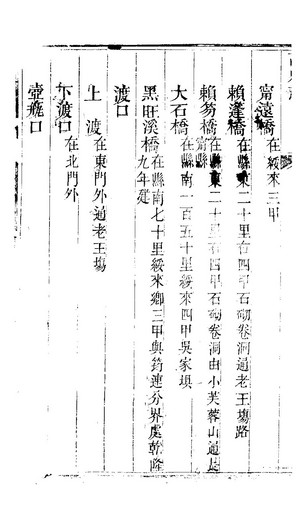 甯遠橋在綏來三甲
賴逢橋在縣東二十里右四甲石砌卷洞過老王塲路
賴笏橋在縣東二十里右四甲石砌卷洞由小芙蓉山通長
甯縣
大石橋在縣南一百五十里綏來四甲吳家垻
黑旺溪橋在縣南七十里綏來鄉三甲與筠連分界處乾隆
九年建
渡口
上渡在東門外過老王塲
下渡口在北門外
壺瓶口